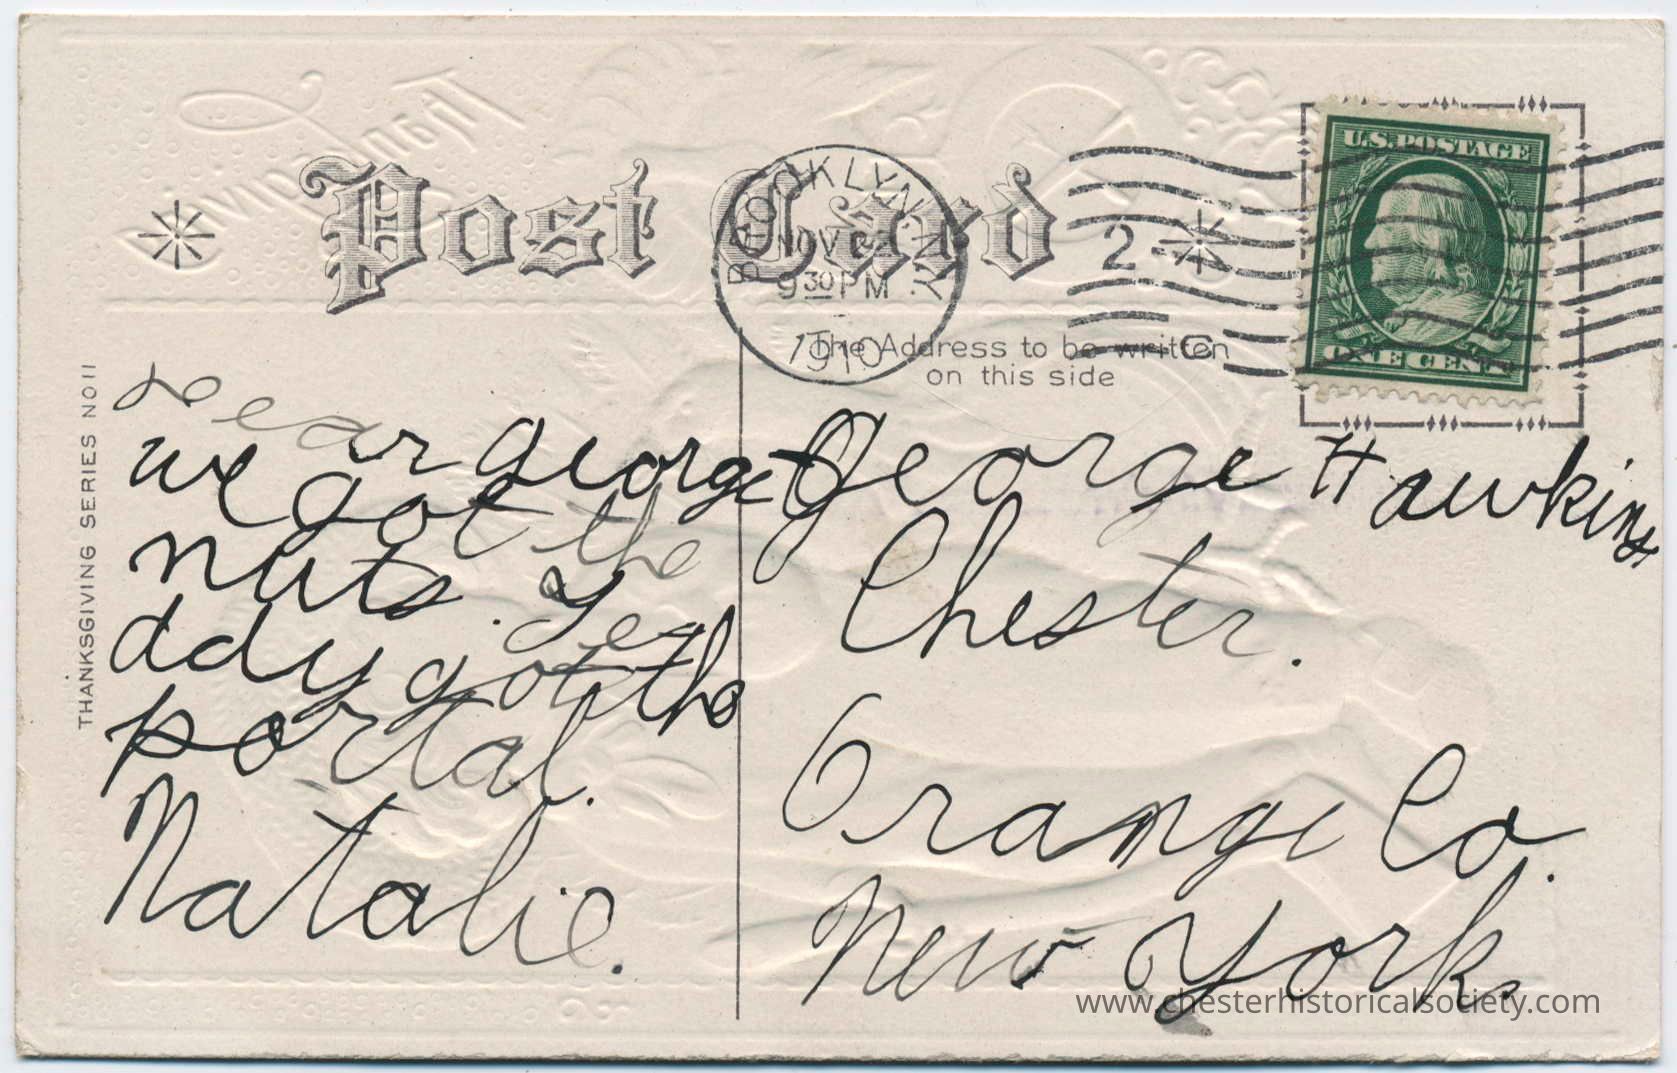 Post Card
BROOKLYN, N.Y.
NOV
9 30 PM
1910
2
C
U.S. POSTAGE
ONE CENT
The Address to be written
on this side
THANKSGIVING SERIES NO 11
Dear George
we got the
nuts. Te
ddy got the
portal.
Natalie.
George Hawkins
Chester.
Orange Co.
New York
www.chesterhistoricalsociety.com